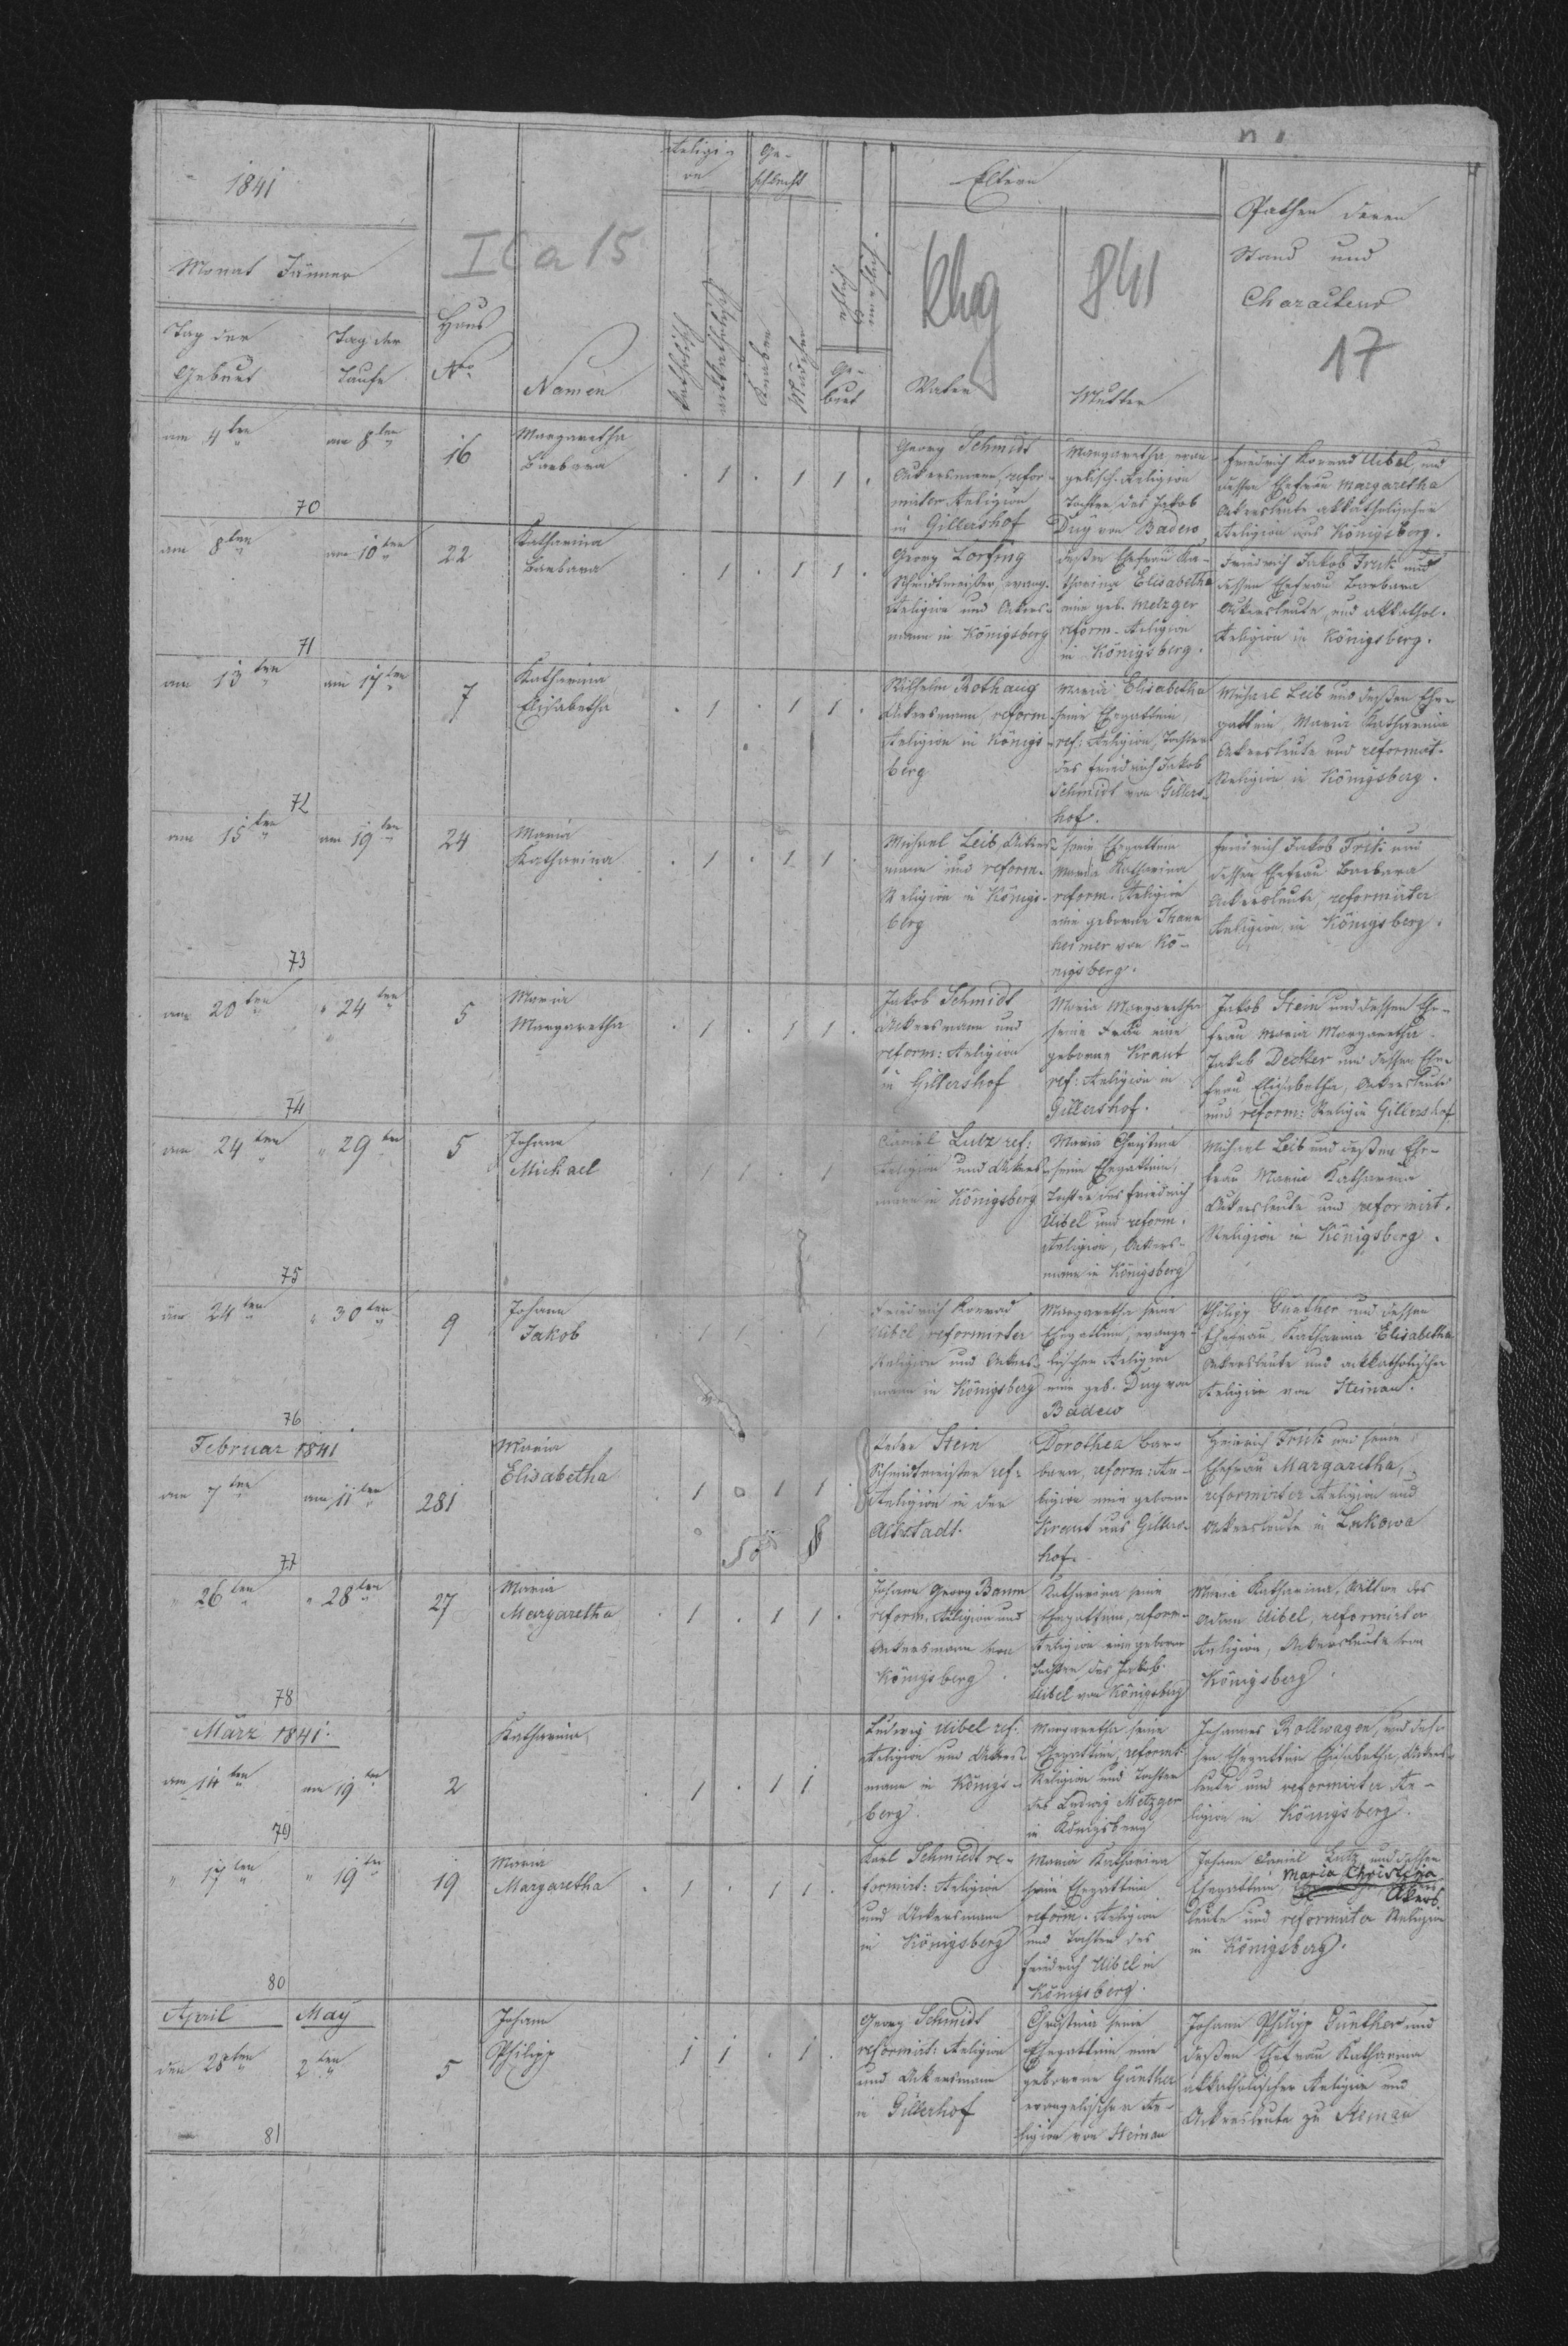 1841
Monat Jänner
Tag der
Geburt
Tag der
Taufe
Haus
Nro
I C a 15
Namen
Religi-
on
Ge-
schlecht
katholisch
akkatholisch
Knaben
Mädchen
ehlich
unehlich
Ge-
burt
Eltern
Khg
841
Vater
Mutter
Pathen deren
Stand und
Characteur
17
am 4ten
am 8ten
16
Margaretha
Barbara
. 1 . 1 1 .
Georg Schmidt
Ackersmann, refor-
mirter Religion
in Gillershof
Margaretha evan-
gelisch. Religion
Tochter des Jakob
Duy von Badew
Friedrich Konrad Uibel, und
dessen Ehefrau Margaretha
Ackersleute akkatholischer
Religion aus Königsberg.
70
am 8ten
am 10ten
22
Katharina
Barbara
. 1 . 1 1 .
Georg Lorfing
Schmidtmeister, evang.
Religion und Ackers-
mann in Königsberg
deßen Ehefrau Ka-
tharina Elisabetha
eine geb. Metzger
reform. Religion
in Königsberg.
Friedrich Jakob Fritz und
dessen Ehefrau Barbara
Ackersleute, und akkathol.
Religion in Königsberg.
71
am 13ten
am 17ten
7
Katharina
Elisabetha
. 1 . 1 1 .
Wilhelm Rothaug
Ackersmann reform
Religion in Königs-
berg
Maria Elisabetha
seine Ehegattin,
ref: Religion, Tochter
des Friedrich Jakob
Schmidt von Gillers-
hof.
Michael Leib und deßen Ehe-
gattin Maria Katharina
Ackersleute und reformirt.
Religion in Königsberg.
72
am 15ten
am 19ten
24
Maria
Katharina
. 1 . 1 1 .
Michael Leib, Ackers-
mann und reform.
Religion in Königs-
berg
seine Ehegattin
Maria Katharina
reform. Religion
eine geborne Thane
heimer von Kö-
nigsberg.
Friedrich Jakob Fritz und
dessen Ehefrau Barbara
Ackersleute, reformirter
Religion in Königsberg.
73
am 20ten
" 24ten
5
Maria
Margaretha
. 1 . 1 1 .
Jakob Schmidt
Ackersmann und
reform: Religion
in Gillershof
Maria Margaretha
seine Frau eine
geborne Kraut
ref: Religion in
Gillershof.
Jakob Stein und dessen Ehe-
frau Maria Margaretha
Jakob Decker und dessen Ehe-
frau Elisabetha, Ackersleute
und reform: Religion Gillershof
74
am 24ten
" 29ten
5
Johann
Michael
. 1 1 . 1
Daniel Lutz ref:
Religion und Ackers-
mann in Königsberg
Maria Christina
seine Ehegattin,
Tochter des Friedrich
Uibel und reform.
Religion, Ackers-
mann in Königsberg
Michael Leib und deßen Ehe-
frau Maria Katharina
Ackersleute und reformirt.
Religion in Königsberg.
75
am 24ten
" 30ten
9
Johann
Jakob
. 1 1 . 1
Friedrich Konrad
Uibel reformirter
Religion und Ackers-
mann in Königsberg
Margaretha seine
Ehegattin, evange-
lischer Religion
eine geb. Duy von
Badew
Philipp Günther und dessen
Ehefrau, Katharina Elisabetha
Ackersleute und akkatholischer
Religion von Steinau.
76
Februar 1841
am 7ten
am 11ten
281
Maria
Elisabetha
. 1 . 1 1
Peter Stein
Schmidtmeister ref:
Religion in der
Altstadt.
Dorothea Bar-
bara, reform: Re-
ligion eine geborne
Kraut aus Gillers-
hof.
Heinrich Fritz und seine
Ehefrau Margaretha,
reformirter Religion und
Ackersleute in Lukowa
77
" 26ten
" 28ten
27
Maria
Margaretha
. 1 . 1 1 .
Johann Georg Baum
reform. Religion und
Ackersmann von
Königsberg.
Katharina seine
Ehegattin, reform-
Religion eine geborne
Tochter des Jakob
Uibel von Königsberg
Maria Katharina, Wittwe des
Adam Uibel, reformirter
Religion, Ackersleute von
Königsberg.
78
März 1841.
am 14ten
am 19ten
2
Katharina
. 1 . 1 1
Ludwig Uibel ref:
Religion und Ackers-
mann in Königs-
berg.
Margaretha seine
Ehegattin, reformt
Religion und Tochter
des Ludwig Metzger
in Königsberg
Johannes Rollwagen, und des-
sen Ehegattin Elisabetha, Ackers-
leute und reformirter Re-
ligion in Königsberg.
79
" 17ten
" 19ten
19
Maria
Margaretha
. 1 . 1 1 .
Karl Schmidt re-
formirt: Religion
und Ackersmann
in Königsberg
Maria Katharina
seine Ehegattin
reform. Religion
und Tochter des
Friedrich Uibel in
Königsberg.
Johann Daniel Lutz und dessen
Ehegattin Maria Christina
Ackers
leute und reformirter Religion
in Königsberg.
80
April
May
den 28ten
2ten
5
Johann
Philipp
1 1 . 1 .
Georg Schmidt
reformirt: Religion
und Ackersmann
in Gillerhof
Christina seine
Ehegattin eine
geborene Günther
evangelischer Re-
ligion von Steinau
Johann Philipp Günther und
deßen Ehefrau Katharina
akkatholischer Religion und
Ackersleute zu Steinau
81